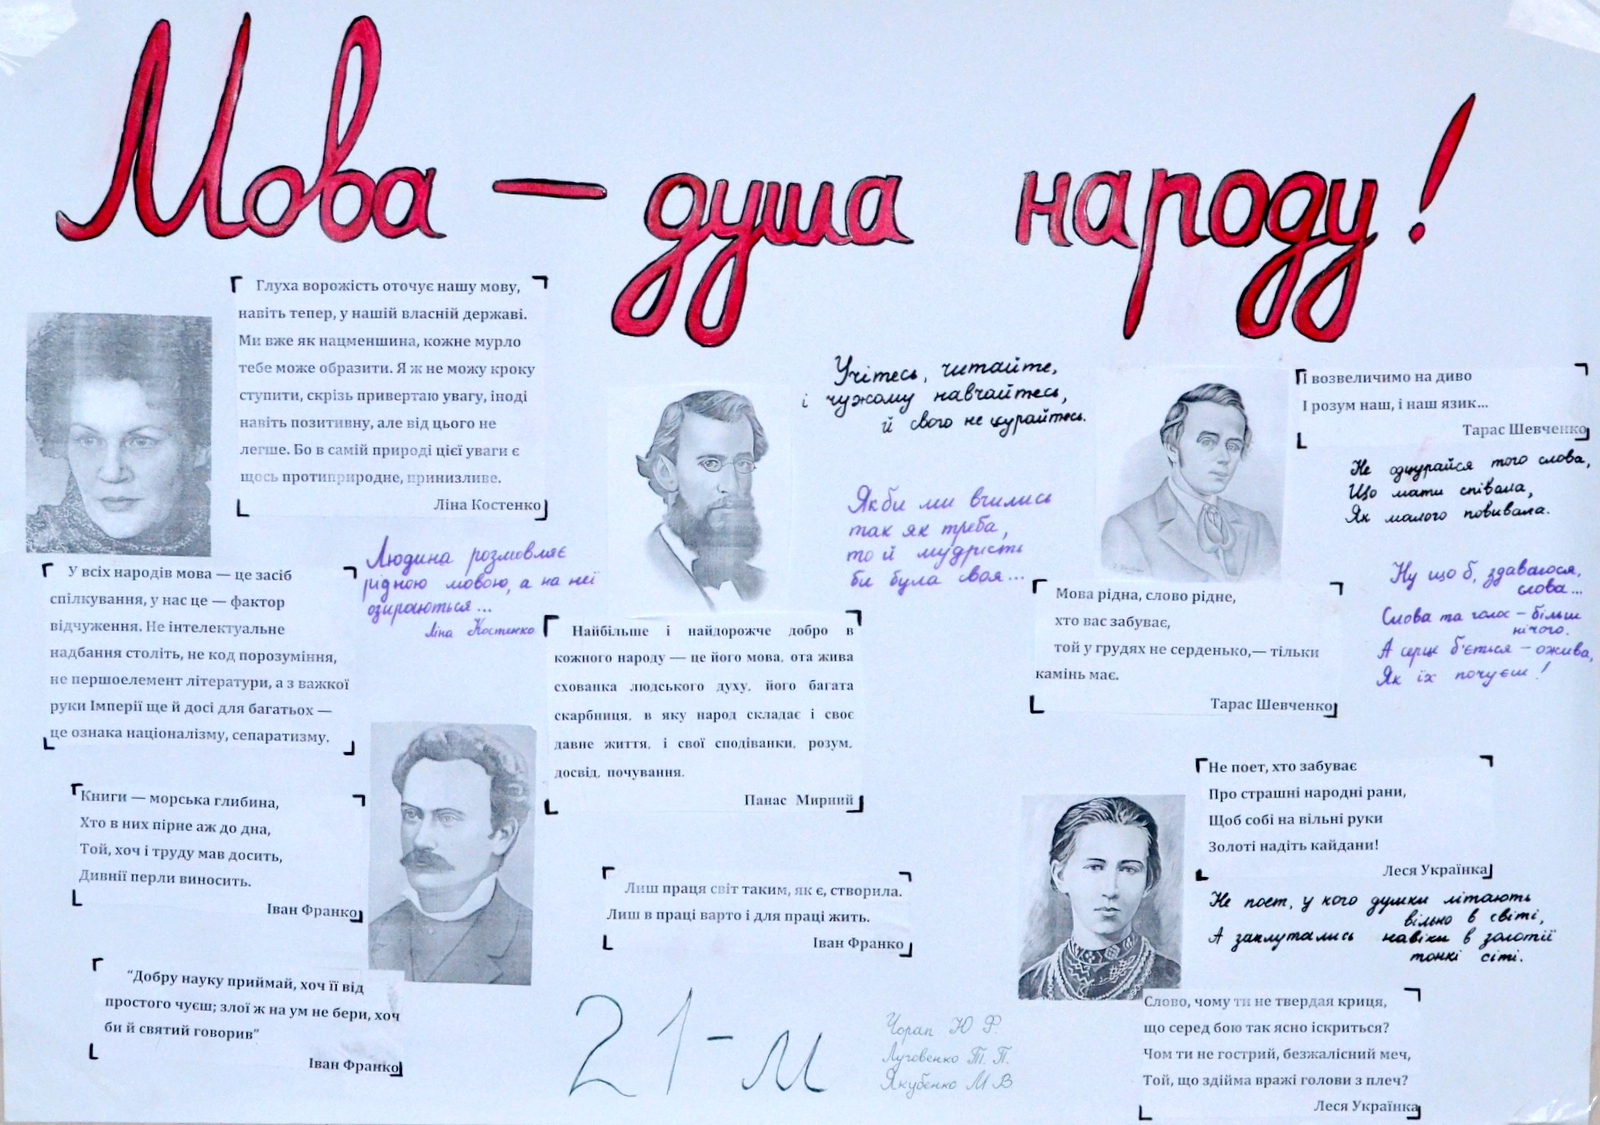 Мова — душа народу!
Глуха ворожість оточує нашу мову,
навіть тепер, у нашій власній державі.
Ми вже як нацменшина, кожне мурло
тебе може образити. Я ж не можу кроку
ступити, скрізь привертаю увагу, іноді
навіть позитивну, але від цього не
легше. Бо в самій природі цієї уваги є
щось протиприродне, принизливе.
Ліна Костенко
У всіх народів мова — це засіб
спілкування, у нас це — фактор
відчуження. Не інтелектуальне
надбання століть, не код порозуміння,
не першоелемент літератури, а з важкої
руки Імперії ще й досі для багатьох —
це ознака націоналізму, сепаратизму.
Людина розмовляє
рідною мовою, а на неї
озираються...
Ліна Костенко
Книги — морська глибина,
Хто в них пірне аж до дна,
Той, хоч і труду мав досить,
Дивнії перли виносить.
Іван Франко
“Добру науку приймай, хоч її від
простого чуєш; злої ж на ум не бери, хоч
би й святий говорив”
Іван Франко
Учітесь, читайте,
і чужому навчайтесь,
й свого не цурайтесь.
Якби ми вчились
так як треба,
то й мудрість
би була своя...
Найбільше і найдорожче добро в
кожного народу — це його мова, ота жива
схованка людського духу, його багата
скарбниця, в яку народ складає і своє
давнє життя, і свої сподіванки, розум,
досвід, почування.
Панас Мирний
Лиш праця світ таким, як є, створила.
Лиш в праці варто і для праці жить.
Іван Франко
І возвеличимо на диво
І розум наш, і наш язик...
Тарас Шевченко
Не одцурайся того слова,
Що мати співала,
Як малого повивала.
Мова рідна, слово рідне,
хто вас забуває,
той у грудях не серденько,— тільки
камінь має.
Тарас Шевченко
Ну що б, здавалося,
слова...
Слова та голос – більш
нічого.
А серце б'ється – ожива,
Як їх почує!
Не поет, хто забуває
Про страшні народні рани,
Щоб собі на вільні руки
Золоті надіть кайдани!
Леся Українка
Не поет, у кого думки літають
вільно в світі,
А заплутались навіки в золотії
тонкі сіті.
Слово, чому ти не твердая криця,
що серед бою так ясно іскриться?
Чом ти не гострий, безжалісний меч,
Той, що здійма вражі голови з плеч?
Леся Українка
21-м
Чорап Ю Ф.
Луговенко Т. П.
Якубенко М В